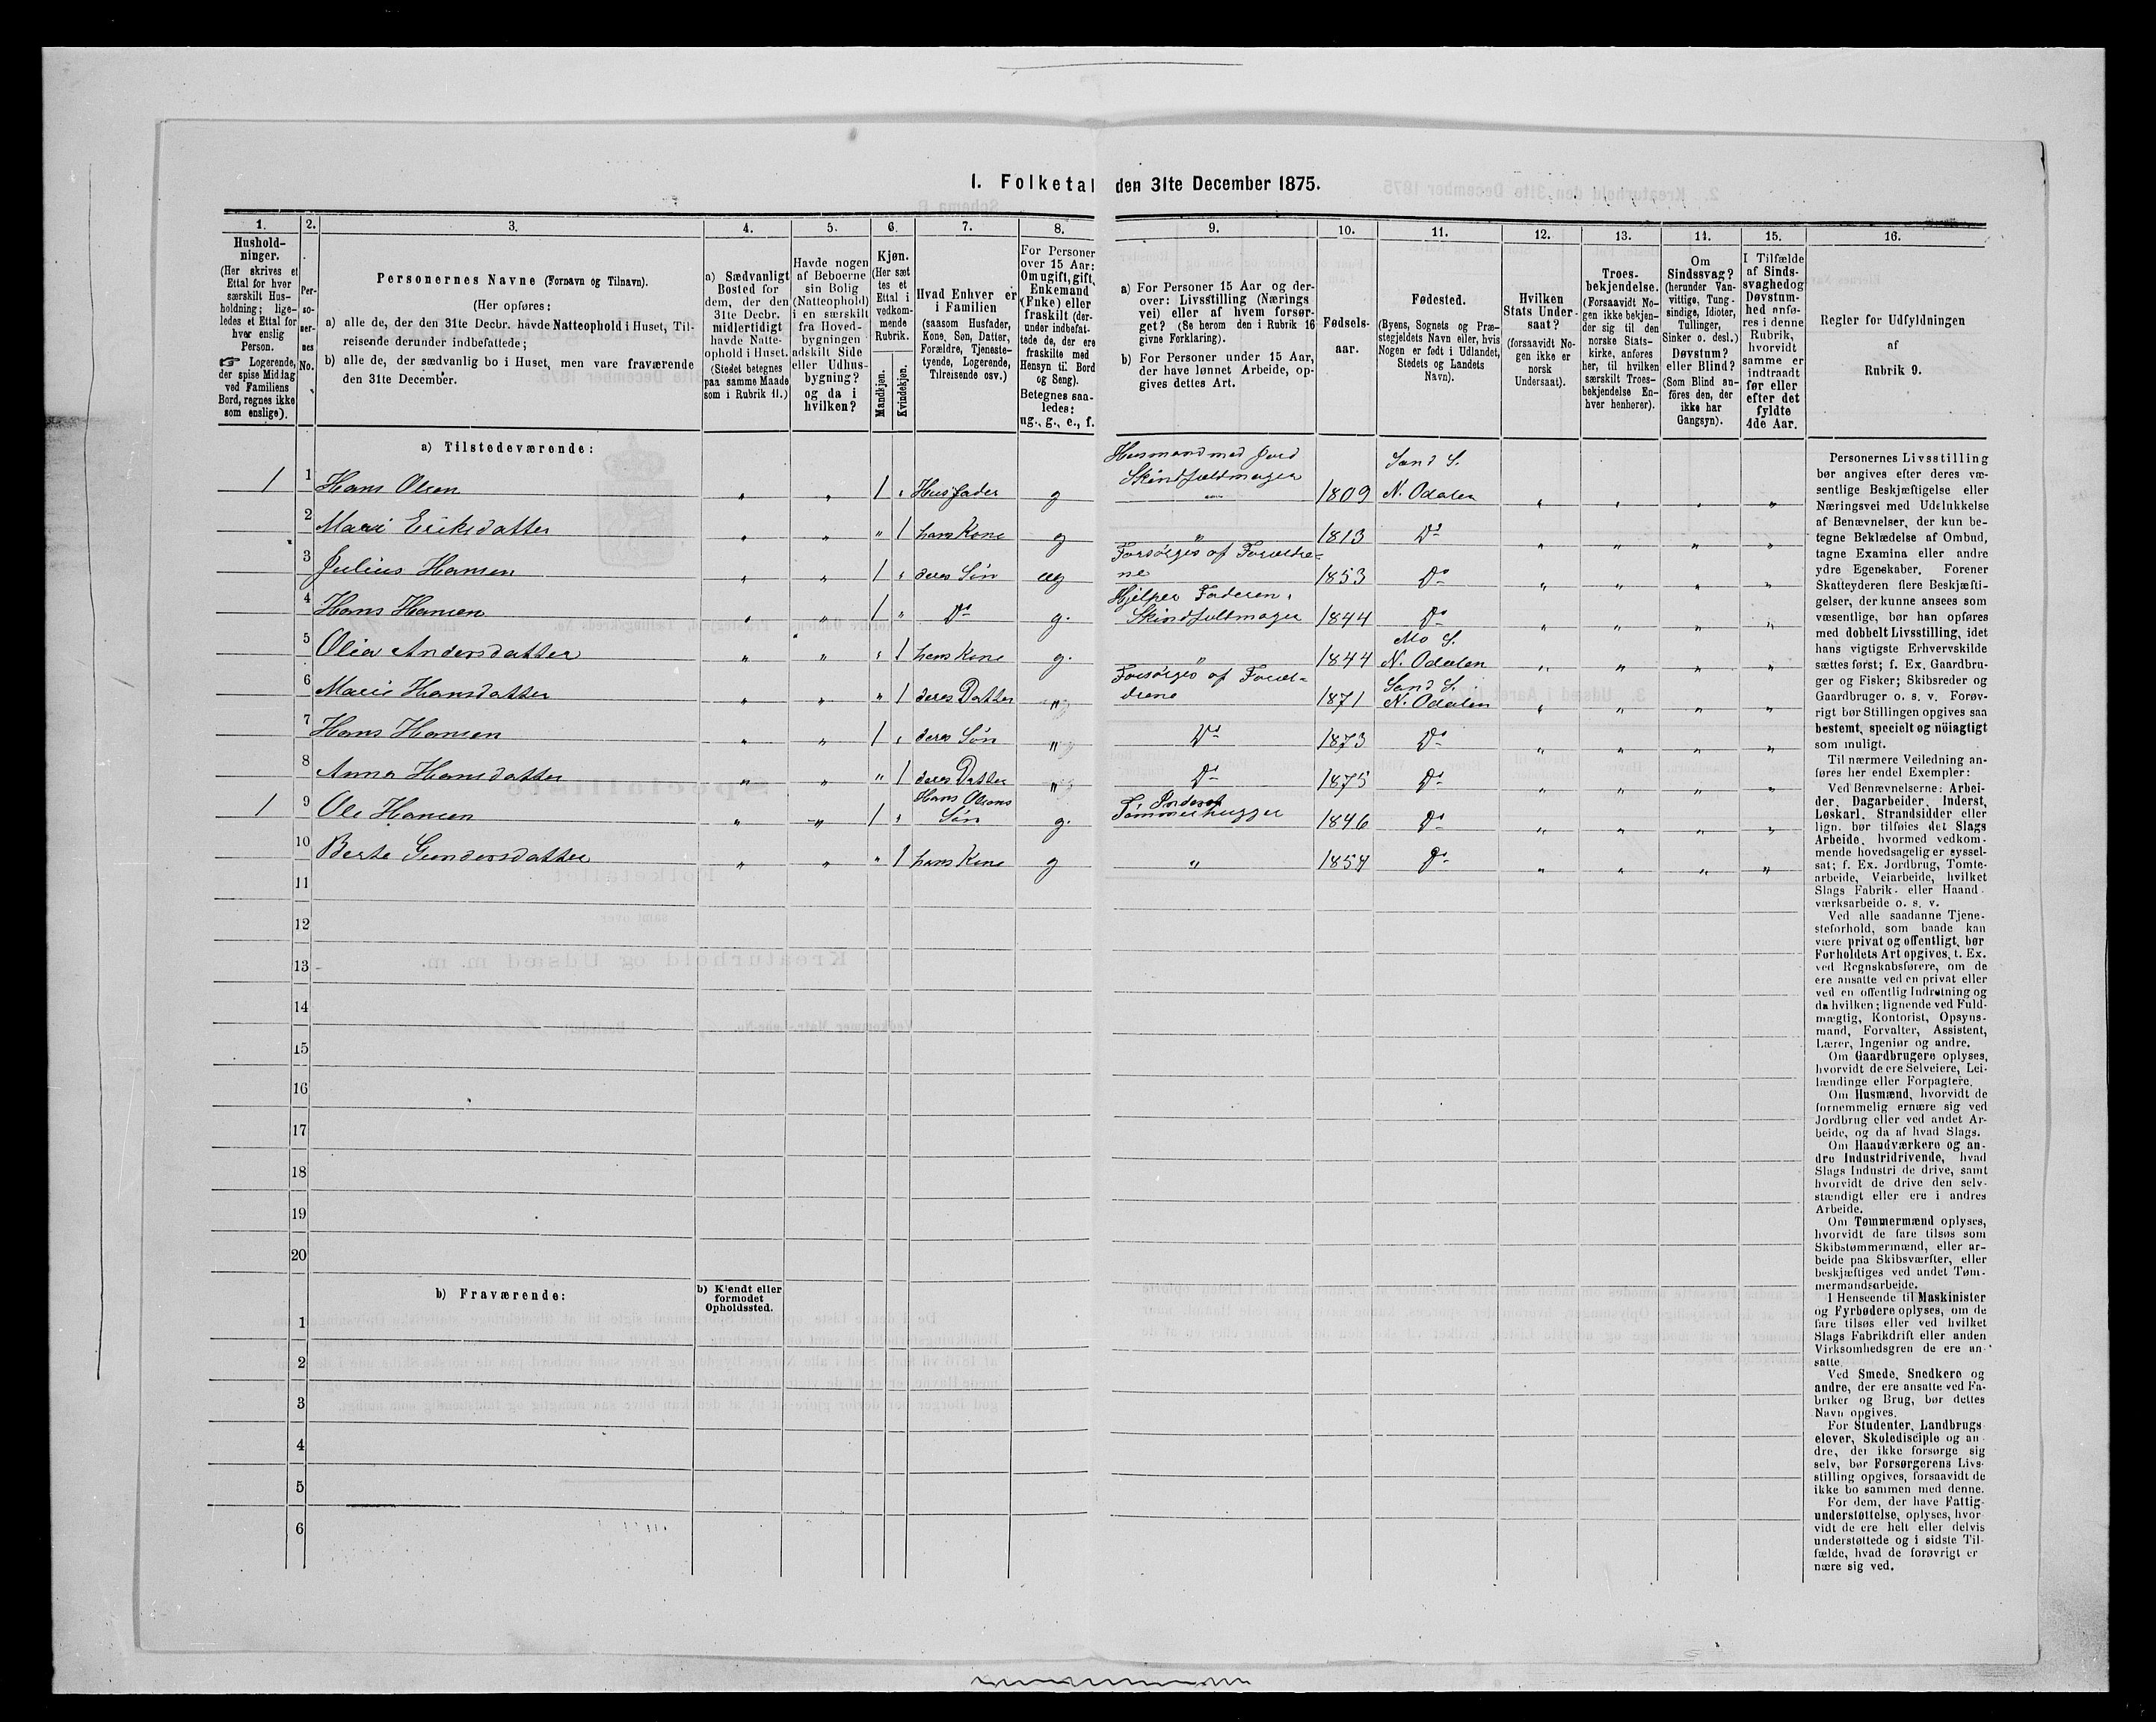 I. Folketal den 31te December 1875.
1.
Hushold-
ninger.
(Her skrives et
Ettal for hver
særskilt Hus-
holdning; lige-
ledes et Ettal for
hver enslig
Person.
☞ Logerende,
der spise Middag
ved Familiens
Bord, regnes ikke
som enslige).
2.
Per-
so-
ner-
nes
No.
3.
Personernes Navne (Fornavn og Tilnavn).
(Her opføres:
a) alle de, der den 31te Decbr. havde Natteophold i Huset, Til-
reisende derunder indbefattede;
b) alle de, der sædvanlig bo i Huset, men vare fraværende
den 31te December.
4.
a) Sædvanligt
Bosted for
dem, der den
31te Decbr.
midlertidigt
havde Natte-
ophold i Huset.
(Stedet betegnes
paa samme Maade
som i Rubrik 11.)
5.
Havde nogen
af Beboerne
sin Bolig
(Natteophold)
i en særskilt
fra Hoved-
bygningen
adskilt Side
eller Udhus-
bygning?
og da i
hvilken?
6.
Kjøn.
(Her sæt-
tes et
Ettal i
vedkom-
mende
Rubrik.
Mandkjøn.
Kvindekjøn.
7.
Hvad Enhver er
i Familien
(saasom Husfader,
Kone, Søn, Datter,
Forældre, Tjeneste-
tyende, Logerende,
Tilreisende osv.)
8.
For Personer
over 15 Aar:
Om ugift, gift,
Enkemand
(Enke) eller
fraskilt (der-
under indbefat-
tede de, der ere
fraskilte med
Hensyn til Bord
og Seng).
Betegnes saa-
ledes:
ug., g., e., f.
9.
a) For Personer 15 Aar og der-
over: Livsstilling (Nærings
vei) eller af hvem forsør-
get? (Se herom den i Rubrik 16
givne Forklaring).
b) For Personer under 15 Aar,
der have lønnet Arbeide, op-
gives dettes Art.
10.
Fødsels-
aar.
11.
Fødested.
(Byens, Sognets og Præ-
stegjeldets Navn eller, hvis
Nogen er født i Udlandet,
Stedets og Landets
Navn).
12.
Hvilken
Stats Under-
saat?
(forsaavidt No-
gen ikke er
norsk
Undersaat).
13.
Troes-
bekjendelse.
(Forsaavidt No-
gen ikke bekjen-
der sig til den
norske Stats-
kirke, anføres
her, til hvilken
særskilt Troes-
bekjendelse En-
hver henhører).
14.
Om
Sindssvag?
(herunder Van-
vittige, Tung-
sindige, Idioter,
Tullinger,
Sinker o. desl.)
Døvstum?
eller Blind?
(Som Blind an-
føres den, der
ikke har
Gangsyn).
15.
I Tilfælde
af Sinds-
svaghed og
Døvstum-
hed anfø-
res i denne
Rubrik,
hvorvidt
samme er
indtraadt
før eller
efter det
fyldte
4de Aar.
16.
Regler for Udfyldningen
af
Rubrik 9.
a) Tilstedeværende:
Husmand med Jord Sand S.
1 1 Hans Olsen " " 1 " Husfader g Skindfældmager 1809 N. Odalen " " " "
2 Mari Eriksdatter " " " 1 hans Kone g " 1813 Do " " " "
Forsørges af Forældre-
3 Julius Hansen " " 1 " deres Søn ug ne 1853 Do " " " "
Hjelper Faderen,
4 Hans Hansen " " 1 " Do g. Skindfeldmager 1844 Do " " " "
Mo S.
5 Olea Andersdatter " " " 1 hans Kone g. " 1844 N. Odalen " " " "
Forsørges af Foræl- Sand S.
6 Marie Hansdatter " " " 1 deres Datter " drene 1871 N. Odalen " " " "
7 Hans Hansen " " 1 " deres Søn " Do 1873 Do " " " "
8 Anna Hansdatter " " " 1 deres Datter " Do 1875 Do " " " "
Hans Olsens Inderst
1 9 Ole Hansen " " 1 " Søn g. Tømmerhugger 1846 Do " " " "
10 Berte Gundersdatter " " " 1 hans Kone g " 1854 Do " " " "
11
12
13
14
15
16
17
18
19
20
b) Fraværende:
b) Kjendt eller
formodet
Opholdssted.
1
2
3
4
5
6
Personernes Livsstilling
bør angives efter deres væ-
sentlige Beskjæftigelse eller
Næringsvei med Udelukkelse
af Benævnelser, der kun be-
tegne Beklædelse af Ombud,
tagne Examina eller andre
ydre Egenskaber. Forener
Skatteyderen flere Beskjæfti-
gelser, der kunne ansees som
væsentlige, bør han opføres
med dobbelt Livsstilling, idet
hans vigtigste Erhvervskilde
sættes først; f. Ex. Gaardbru-
ger og Fisker; Skibsreder og
Gaardbruger o. s. v. Forøv-
rigt bør Stillingen opgives saa
bestemt, specielt og nöiagtigt
som muligt.
Til nærmere Veiledning an-
føres her endel Exempler:
Ved Benævnelserne: Arbei-
der, Dagarbeider, Inderst,
Løskarl, Strandsidder eller
lign. bør tilføies det Slags
Arbeide, hvormed vedkom-
mende hovedsagelig er syssel-
sat; f. Ex. Jordbrug, Tomte-
arbeide, Veiarbeide, hvilket
Slags Fabrik- eller Haand-
værksarbeide o. s. v.
Ved alle saadanne Tjene-
steforhold, som baade kan
være privat og offentligt, bør
Forholdets Art opgives, t. Ex.
ved Regnskabsførere, om de
ere ansatte ved en privat eller
ved en offentlig Indretning og
da hvilken; lignende ved Fuld-
mægtig, Kontorist, Opsyns-
mand, Forvalter, Assistent,
Lærer, Ingeniør og andre.
Om Gaardbrugere oplyses,
hvorvidt de ere Selveiere, Lei-
lændinge eller Forpagtere.
Om Husmænd, hvorvidt de
fornemmelig ernære sig ved
Jordbrug eller ved andet Ar-
beide, og da af hvad Slags.
Om Haandværkere og an-
dre Industridrivende, hvad
Slags Industri de drive, samt
hvorvidt de drive den selv-
stændigt eller ere i andres
Arbeide.
Om Tømmermænd oplyses,
hvorvidt de fare tilsøs som
Skibstømmermænd, eller ar-
beide paa Skibsværfter, eller
beskjæftiges ved andet Tøm-
mermandsarbeide.
I Henseende til Maskinister
og Fyrbødere oplyses, om de
fare tilsøs eller ved hvilket
Slags Fabrikdrift eller anden
Virksomhedsgren de ere an-
satte.
Ved Smede, Snedkere og
andre, der ere ansatte ved Fa-
briker og Brug, bør dettes
Navn opgives.
For Studenter, Landbrugs-
elever, Skoledisciple og an-
dre, der ikke forsørge sig
selv, bør Forsørgerens Livs-
stilling opgives, forsaavidt de
ikke bo sammen med denne.
For dem, der have Fattig-
understøttelse, oplyses, hvor-
vidt de ere helt eller delvis
understøttede og i sidste Til-
fælde, hvad de forøvrigt er
nære sig ved.